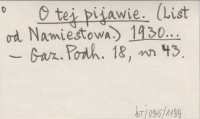 O tej pijawie. (List
od Namiestowa.) 1930...
— Gaz. Podh. 18, nr 43.